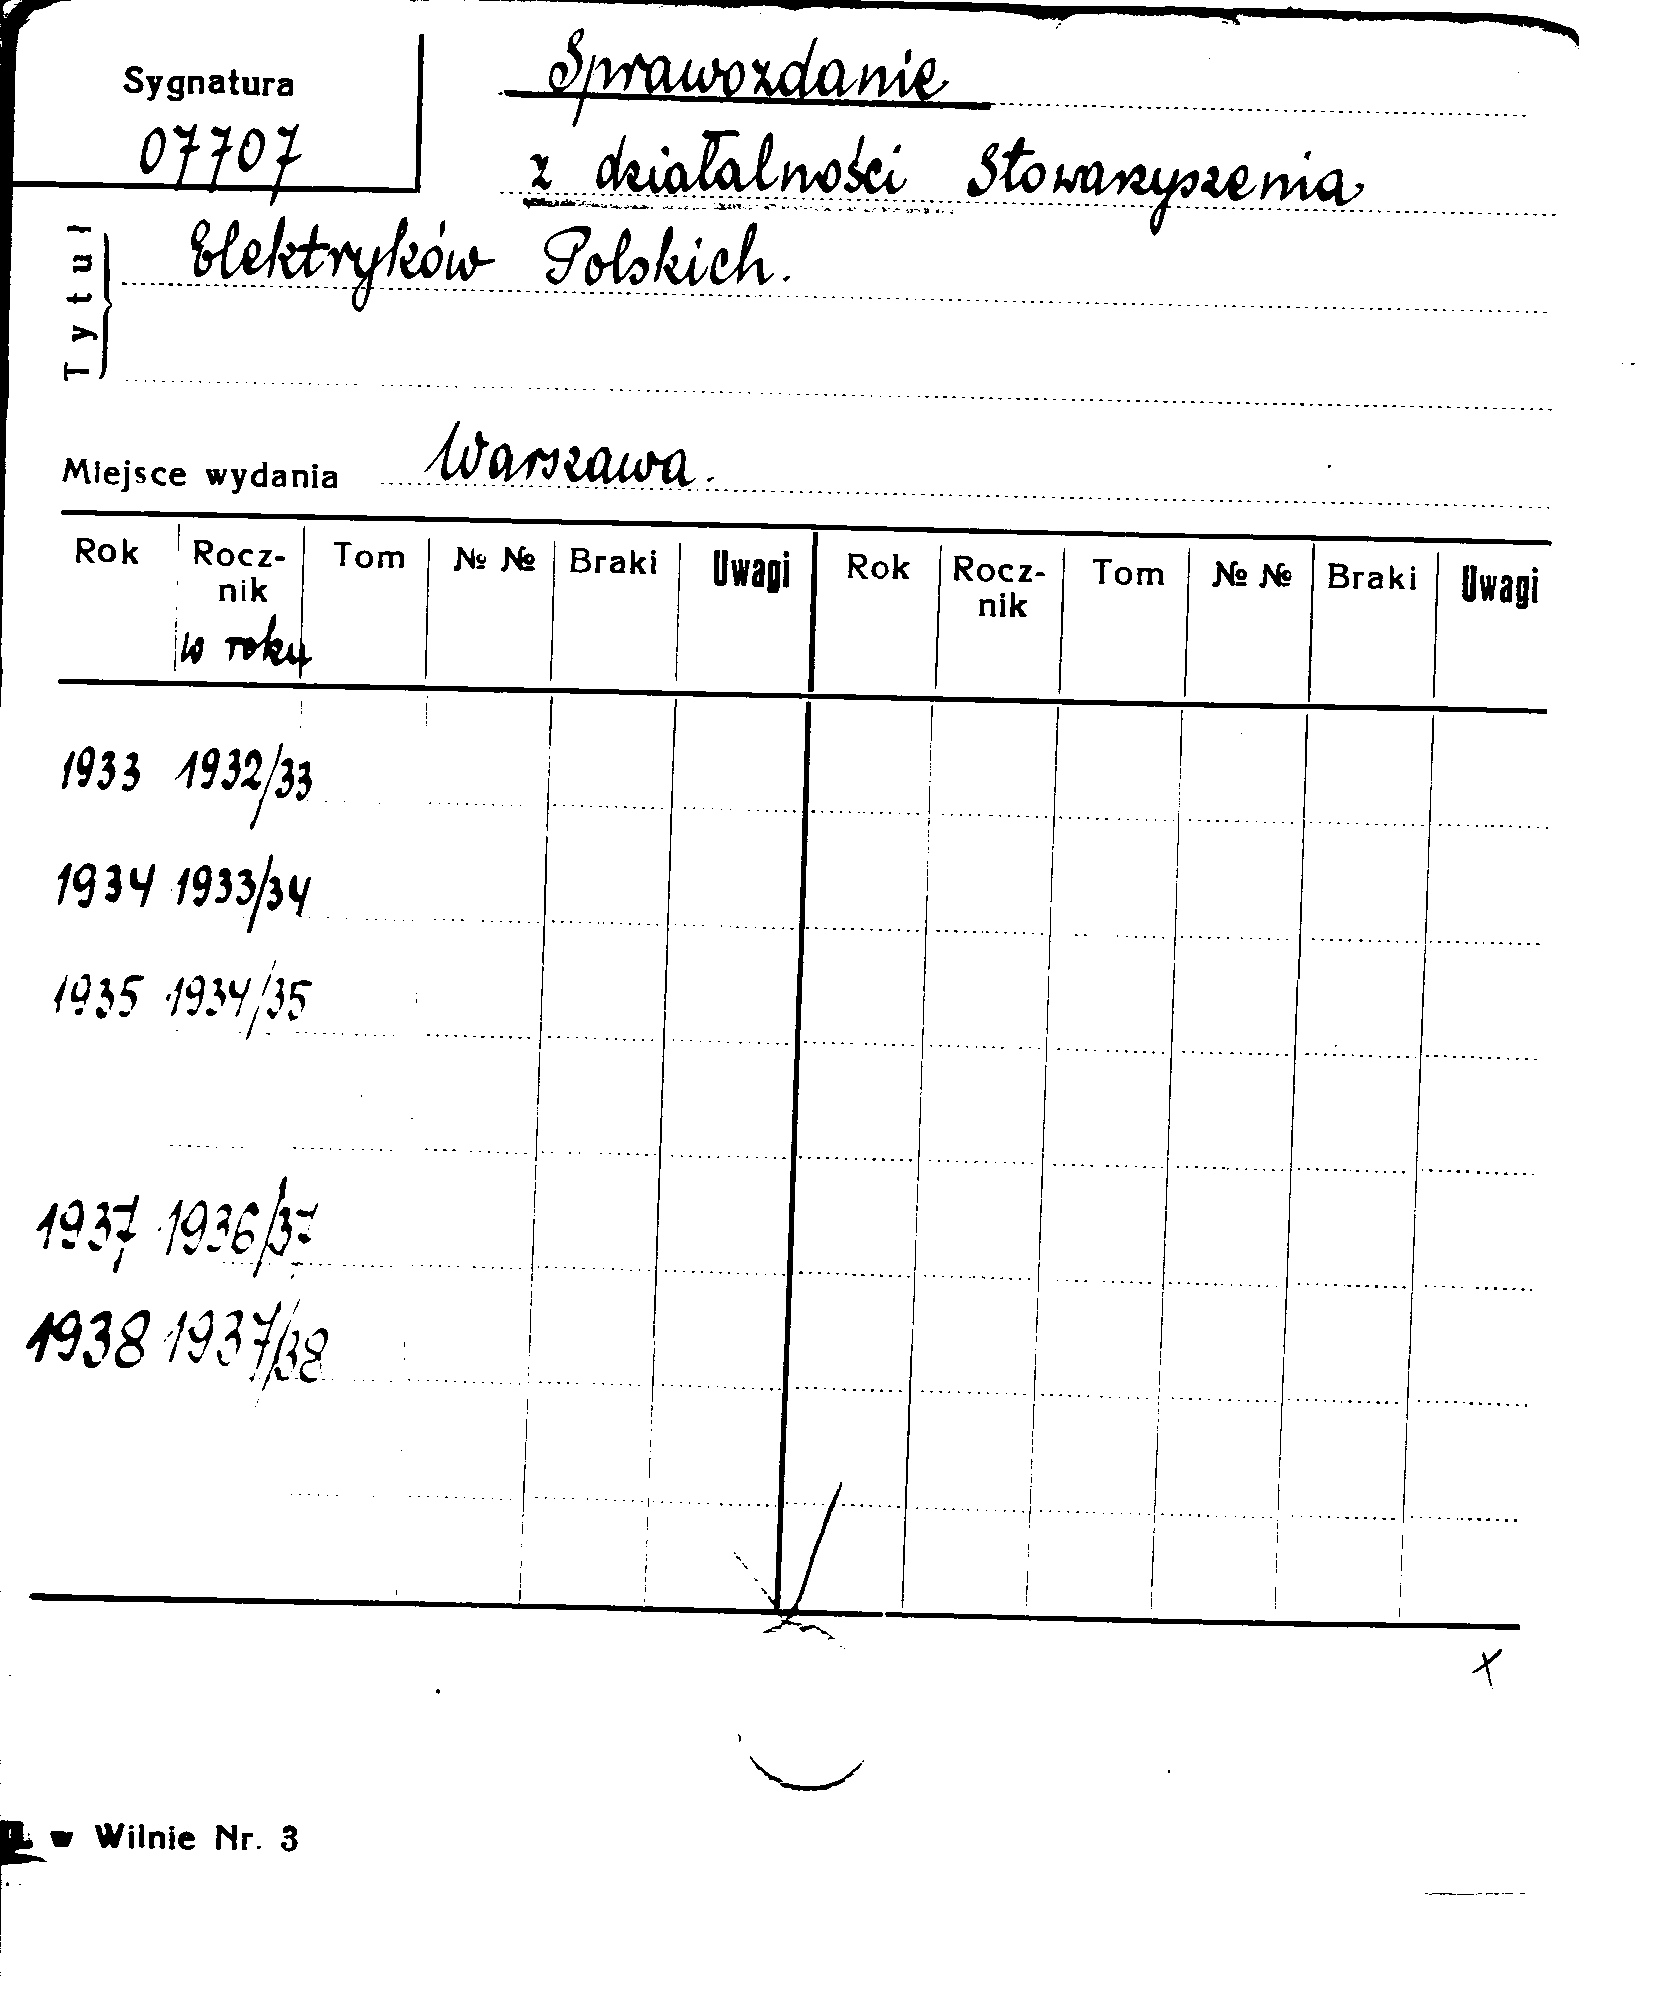 Sygnatura
07707
Sprawozdanie
z działalności Stowarzyszenia
Tytuł
Elektryków Polskich.
Miejsce wydania Warszawa.
Rok Rocz- Tom № № Braki Uwagi Rok Rocz- Tom № № Braki Uwagi
nik nik
w roku
1933 1932/33
1934 1933/34
1935 1934/35
1937 1936/37
1938 1937/38
x
w Wilnie Nr. 3